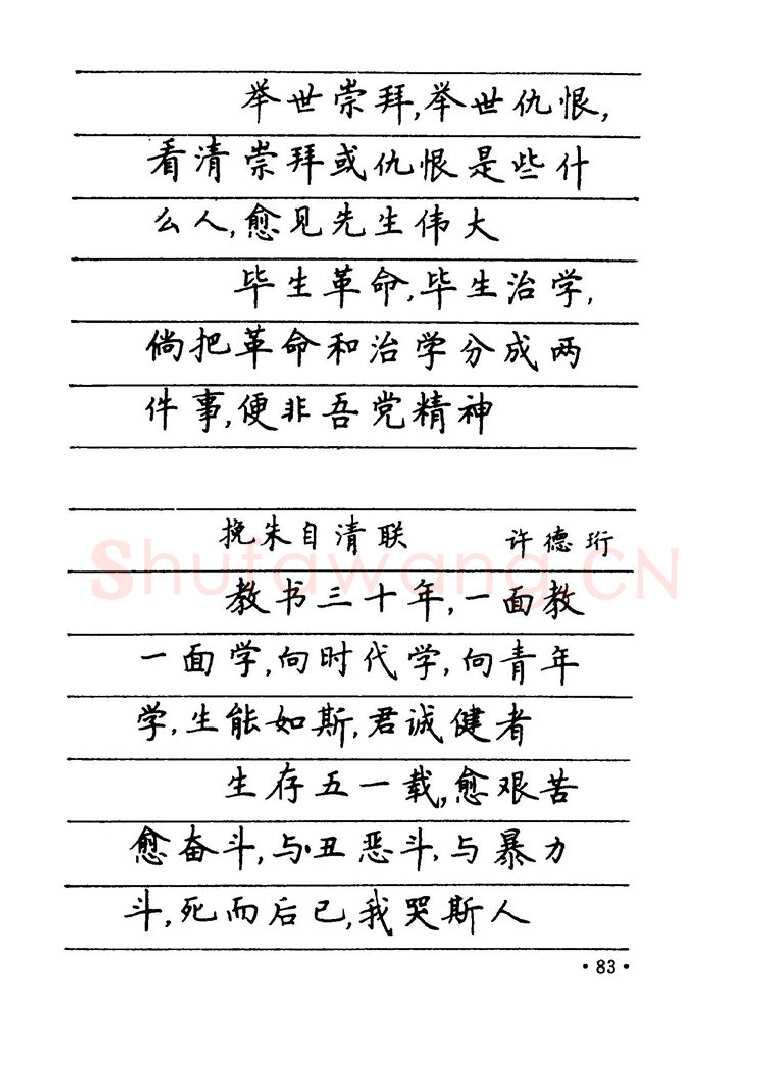 举世崇拜,举世仇恨,
看清崇拜或仇恨是些什
么人,愈见先生伟大
毕生革命,毕生治学,
倘把革命和治学分成两
件事,便非吾党精神
挽朱自清联 许德珩
Shufawang.CN
教书三十年,一面教
一面学,向时代学,向青年
学,生能如斯,君诚健者
生存五一载,愈艰苦
愈奋斗,与丑恶斗,与暴力
斗,死而后已,我哭斯人
·83·